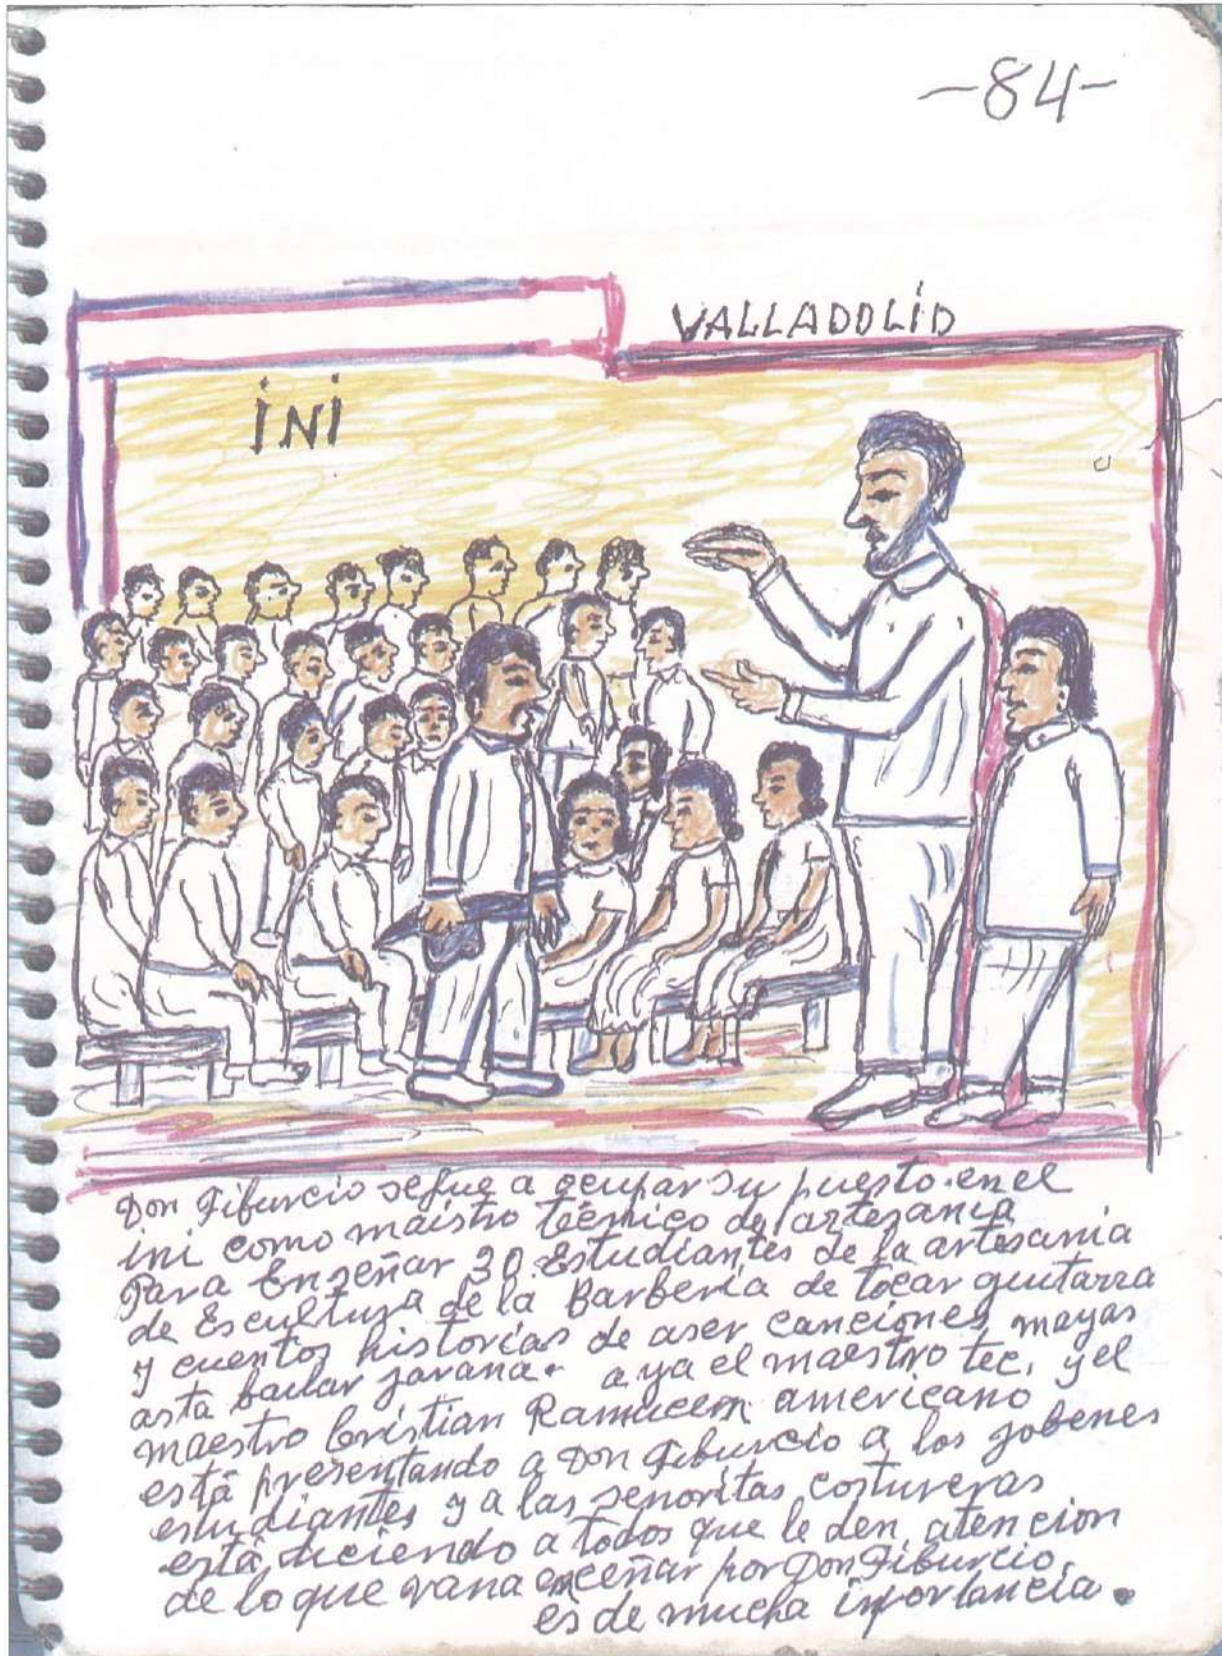 -84-
VALLADOLID
INI
Don Tiburcio se fue a ocupar su puesto en el
ini como maistro técnico de artesania
Para Enseñar 30 Estudiantes de la artesania
de Escultura de la Barberia de tocar guitarra
y cuentos historias de aser canciones mayas
asta bailar jarana. aya el maestro tec. y el
maestro Cristian americano
está presentando a Don Tiburcio a los jobenes
estudiantes y a las señoritas costureras
está diciendo a todos que le den atencion
de lo que van a enceñar por Don Tiburcio.
es de mucha importancia.